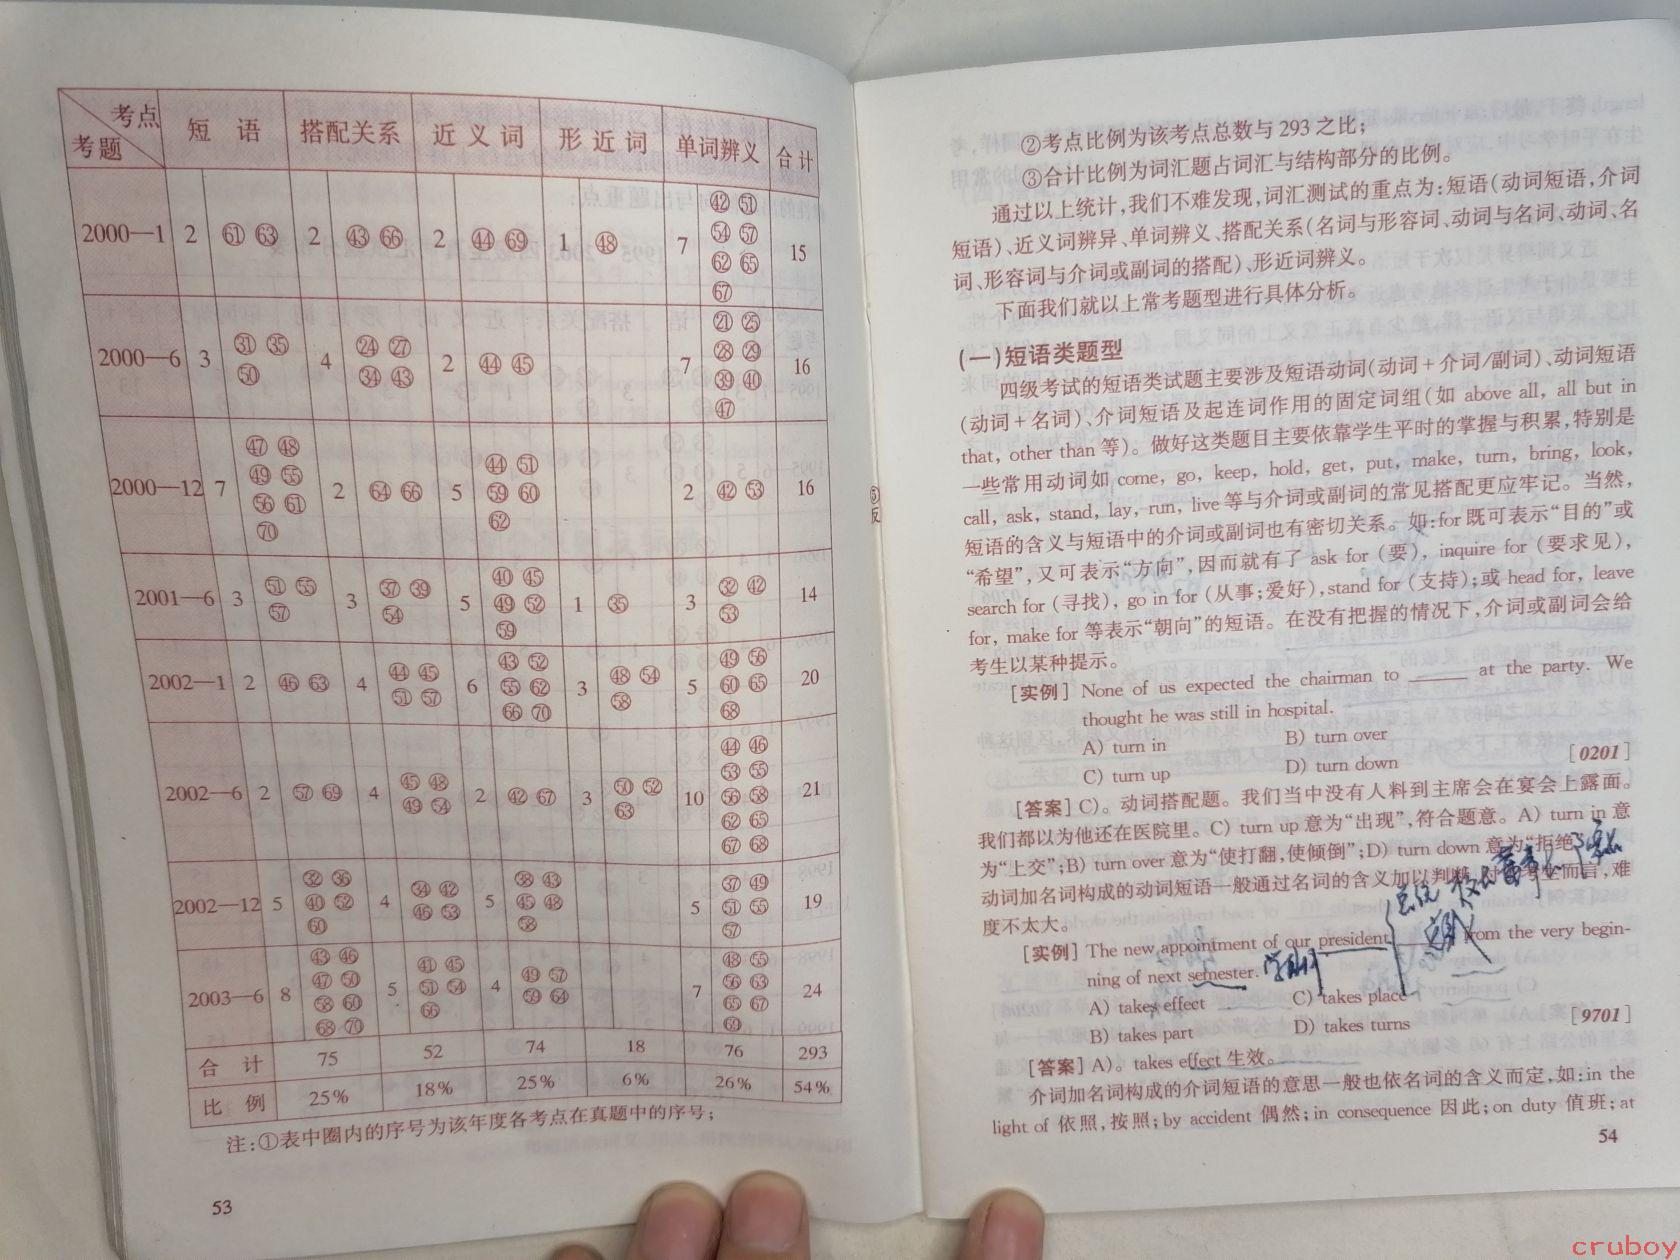 考点
考题
短 语 搭配关系 近义词 形近词 单词辨义 合计
2000—1 2 61 63 2 43 66 2 44 69 1 48 7 42 51 54 57 62 65 67 15
2000—6 3 31 35 50 4 24 27 34 43 2 44 45 7 21 25 28 29 39 40 47 16
2000—12 7 47 48 49 55 56 61 70 2 64 66 5 44 51 59 60 62 2 42 53 16
2001—6 3 51 55 57 3 37 39 54 5 40 45 49 52 59 1 35 3 32 42 53 14
2002—1 2 46 63 4 44 45 51 57 6 43 52 55 62 66 70 3 48 54 58 5 49 56 60 65 68 20
2002—6 2 57 69 4 45 48 49 54 2 42 67 3 50 52 63 10 44 46 53 55 56 58 62 65 67 68 21
2002—12 5 32 36 40 52 60 4 34 42 46 53 5 38 43 45 48 58 5 37 49 51 55 57 19
2003—6 8 43 46 47 50 58 60 68 70 5 41 45 51 54 66 4 49 57 59 64 7 48 55 56 63 65 67 69 24
合 计 75 52 74 18 76 293
比 例 25% 18% 25% 6% 26% 54%
注:①表中圈内的序号为该年度各考点在真题中的序号;
53
②考点比例为该考点总数与293之比;
③合计比例为词汇题占词汇与结构部分的比例。
通过以上统计,我们不难发现,词汇测试的重点为:短语(动词短语,介词
短语)、近义词辨异、单词辨义、搭配关系(名词与形容词、动词与名词、动词、名
词、形容词与介词或副词的搭配)、形近词辨义。
下面我们就以上常考题型进行具体分析。
(一)短语类题型
四级考试的短语类试题主要涉及短语动词(动词+介词/副词)、动词短语
(动词+名词)、介词短语及起连词作用的固定词组(如 above all, all but in
that, other than 等)。做好这类题目主要依靠学生平时的掌握与积累,特别是
一些常用动词如 come, go, keep, hold, get, put, make, turn, bring, look,
call, ask, stand, lay, run, live 等与介词或副词的常见搭配更应牢记。当然,
短语的含义与短语中的介词或副词也有密切关系。如:for 既可表示“目的”或
“希望”,又可表示“方向”,因而就有了 ask for (要), inquire for (要求见),
search for (寻找), go in for (从事;爱好),stand for (支持);或 head for, leave
for, make for 等表示“朝向”的短语。在没有把握的情况下,介词或副词会给
考生以某种提示。
[实例] None of us expected the chairman to ______ at the party. We
thought he was still in hospital.
A) turn in B) turn over
C) turn up D) turn down [0201]
[答案] C)。动词搭配题。我们当中没有人料到主席会在宴会上露面。
我们都以为他还在医院里。C) turn up 意为“出现”,符合题意。A) turn in 意
为“上交”;B) turn over 意为“使打翻,使倾倒”;D) turn down 意为“拒绝
动词加名词构成的动词短语一般通过名词的含义加以判断,对考生而言,难
度不太大。
[实例] The new appointment of our president ______ from the very begin-
ning of next semester.
A) takes effect C) takes place
B) takes part D) takes turns [9701]
[答案] A)。takes effect 生效。
介词加名词构成的介词短语的意思一般也依名词的含义而定,如:in the
light of 依照,按照;by accident 偶然;in consequence 因此;on duty 值班;at
54
cruboy